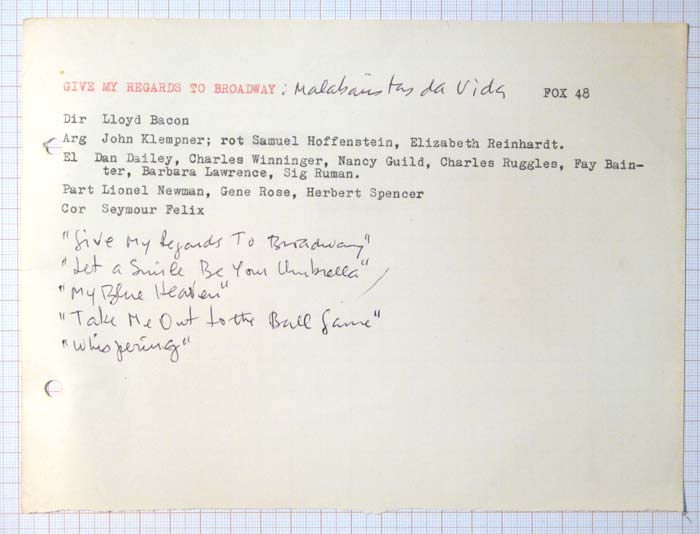 GIVE MY REGARDS TO BROADWAY: Malabaristas da Vida FOX 48
Dir Lloyd Bacon
Arg John Klempner; rot Samuel Hoffenstein, Elizabeth Reinhardt.
El Dan Dailey, Charles Winninger, Nancy Guild, Charles Ruggles, Fay Bain-
ter, Barbara Lawrence, Sig Ruman.
Part Lionel Newman, Gene Rose, Herbert Spencer
Cor Seymour Felix
"Give My Regards To Broadway"
"Let a Smile Be Your Umbrella"
"My Blue Heaven"
"Take Me Out to the Ball Game"
"Whispering"